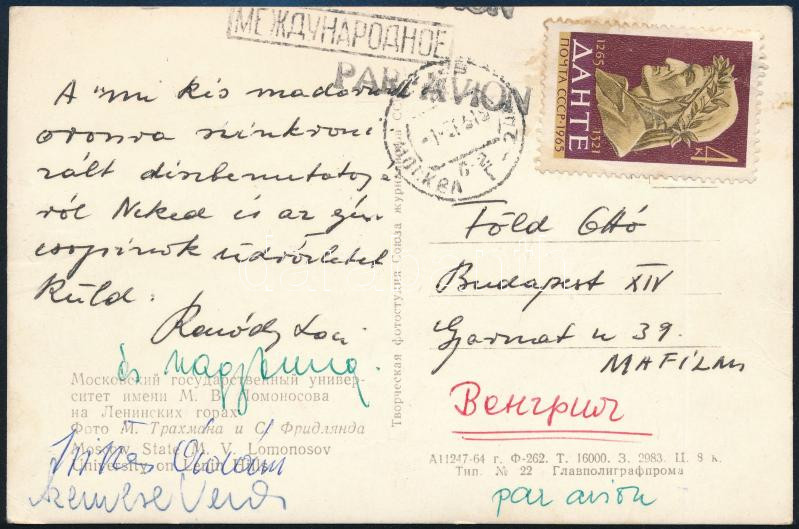 PAR AVION
МЕЖДУНАРОДНОЕ
PAR AVION
МОСКВА
ДАНТЕ
1265
1321
ПОЧТА СССР·1965
4 К
A "mi kis madarunk
oroszra szinkroni
zált díszbemutatójá
ról Neked és az egész
csoportnak üdvözletet
küld:
Ranódy Laci
és nagy
Szemere Vera
Föld Ottó
Budapest XIV
Gyarmat u 39.
MAFILM
Венгрия
par avion
Московский государственный универ-
ситет имени М. В. Ломоносова
на Ленинских горах
Фото М. Трахмана и С. Фридлянда
Moscow State M. V. Lomonosov
University on Lenin Hills
Творческая фотостудия Союза журналистов
А11247-64 г. Ф-262. Т. 16000. З. 2983. Ц. 8 к.
Тип. № 22 Главполиграфпрома